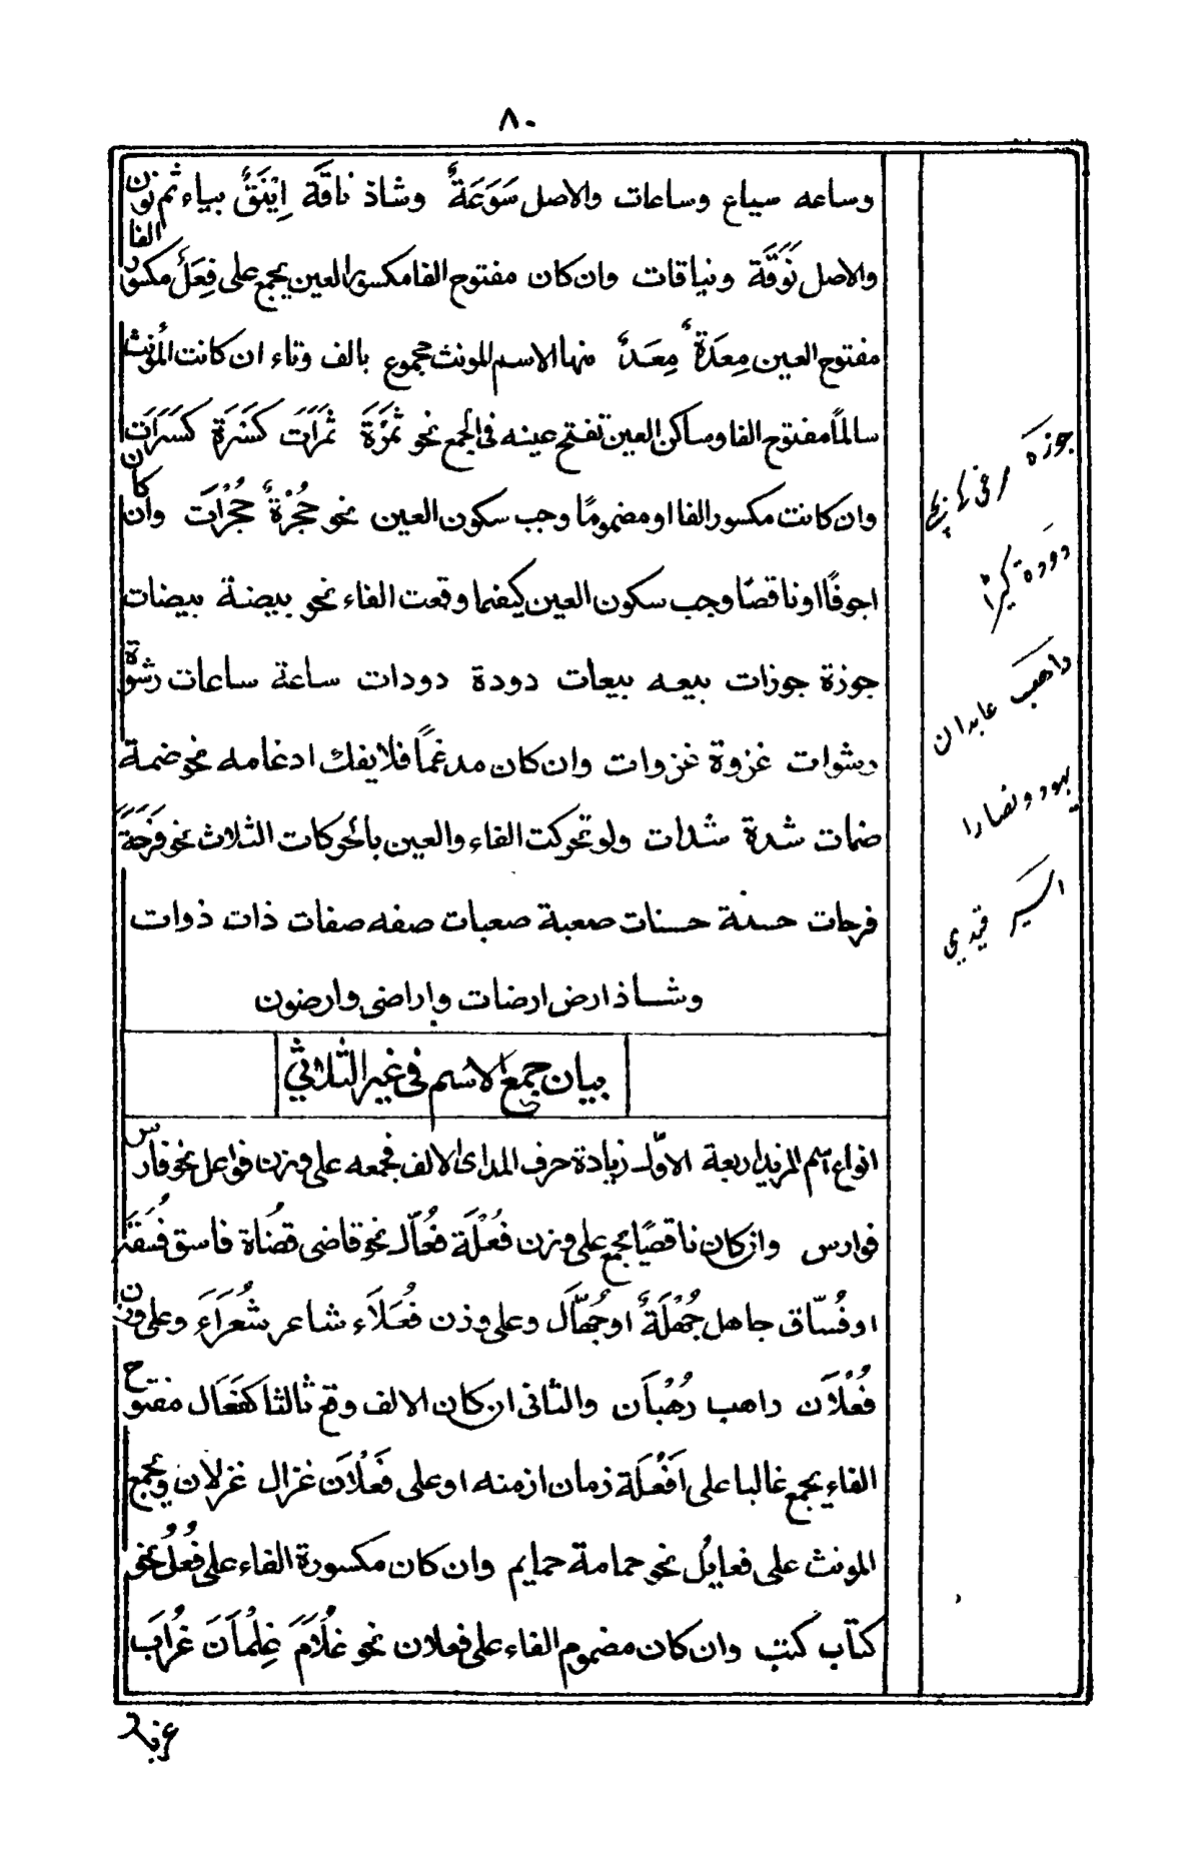 ٨٠
وساعه سياع وساعات والاصل سَوَعَةٌ وشاذ ناقَة اِيْنَقٌ بياء ثم نون
والاصل نَوَقَة ونياقات وان كان مفتوح الفا مكسور العين يجمع على فِعَلٌ مكسور الفا
مفتوح العين مِعَدَةٌ مِعَدٌ منها الاسم المونث مجموع بالف وتاء ان كانت المُونث
سالمًا مفتوح الفا وساكن العين تفتح عينه فى الجمع نحو ثَمْرَةَ ثَمَرَات كَسْرَة كَسَرَات
وان كانت مكسور الفا او مضمومًا وجب سكون العين نحو حُجْرَةٌ حُجْرَات وان كان
اجوفًا او ناقصًا وجب سكون العين كيفما وقعت الفاء نحو بيضة بيضات
جوزة جوزات بيعه بيعات دودة دودات ساعة ساعات رشوة
رشوات غزوة غزوات وان كان مدغمًا فلا يفك ادغامه نحو ضمة
ضمات شدة شدات ولو تحركت الفاء والعين بالحركات الثلاث نحو فَرَحَةَ
فرحات حسنة حسنات صعبة صعبات صفه صفات ذات ذوات
وشاذ ارض ارضات واراضى وارضون
بيان جمع الاسم فى غير الثلاثي
انواع اسم المزيد اربعة الاوّل زيادة حرف المد اى الالف فجمعه على وزن فواعل نحو فارس
فوارس وان كان ناقصًا يجمع على وزن فُعْلَة فُعَّال نحو قاضى قضُاة فاسق فُسَقَة
او فُسّاق جاهل جُهْلَةٌ او جُهَّال وعلى وزن فُعَلَاء شاعر شُعَرَاءَ وعلى وزن
فُعْلَان راهب رُهْبَان والثانى ان كان الالف وقع ثالثا كفَعَال مفتوح
الفاء يجمع غالبا على اَفْعُلَة زمان ازمنه او على فَعْلَان غزال غزلان ويجمع
المونث على فعايُل نحو حمامة حمايم وان كان مكسورة الفاء على فُعُلُ نحو
كتاب كتب وان كان مضموم الفاء على فعلان نحو غُلَامَ غِلْمَان غُرَاب
جوزه
دوده كيرا
راهب عابدان
يهود ونصارا
اسير قيدي